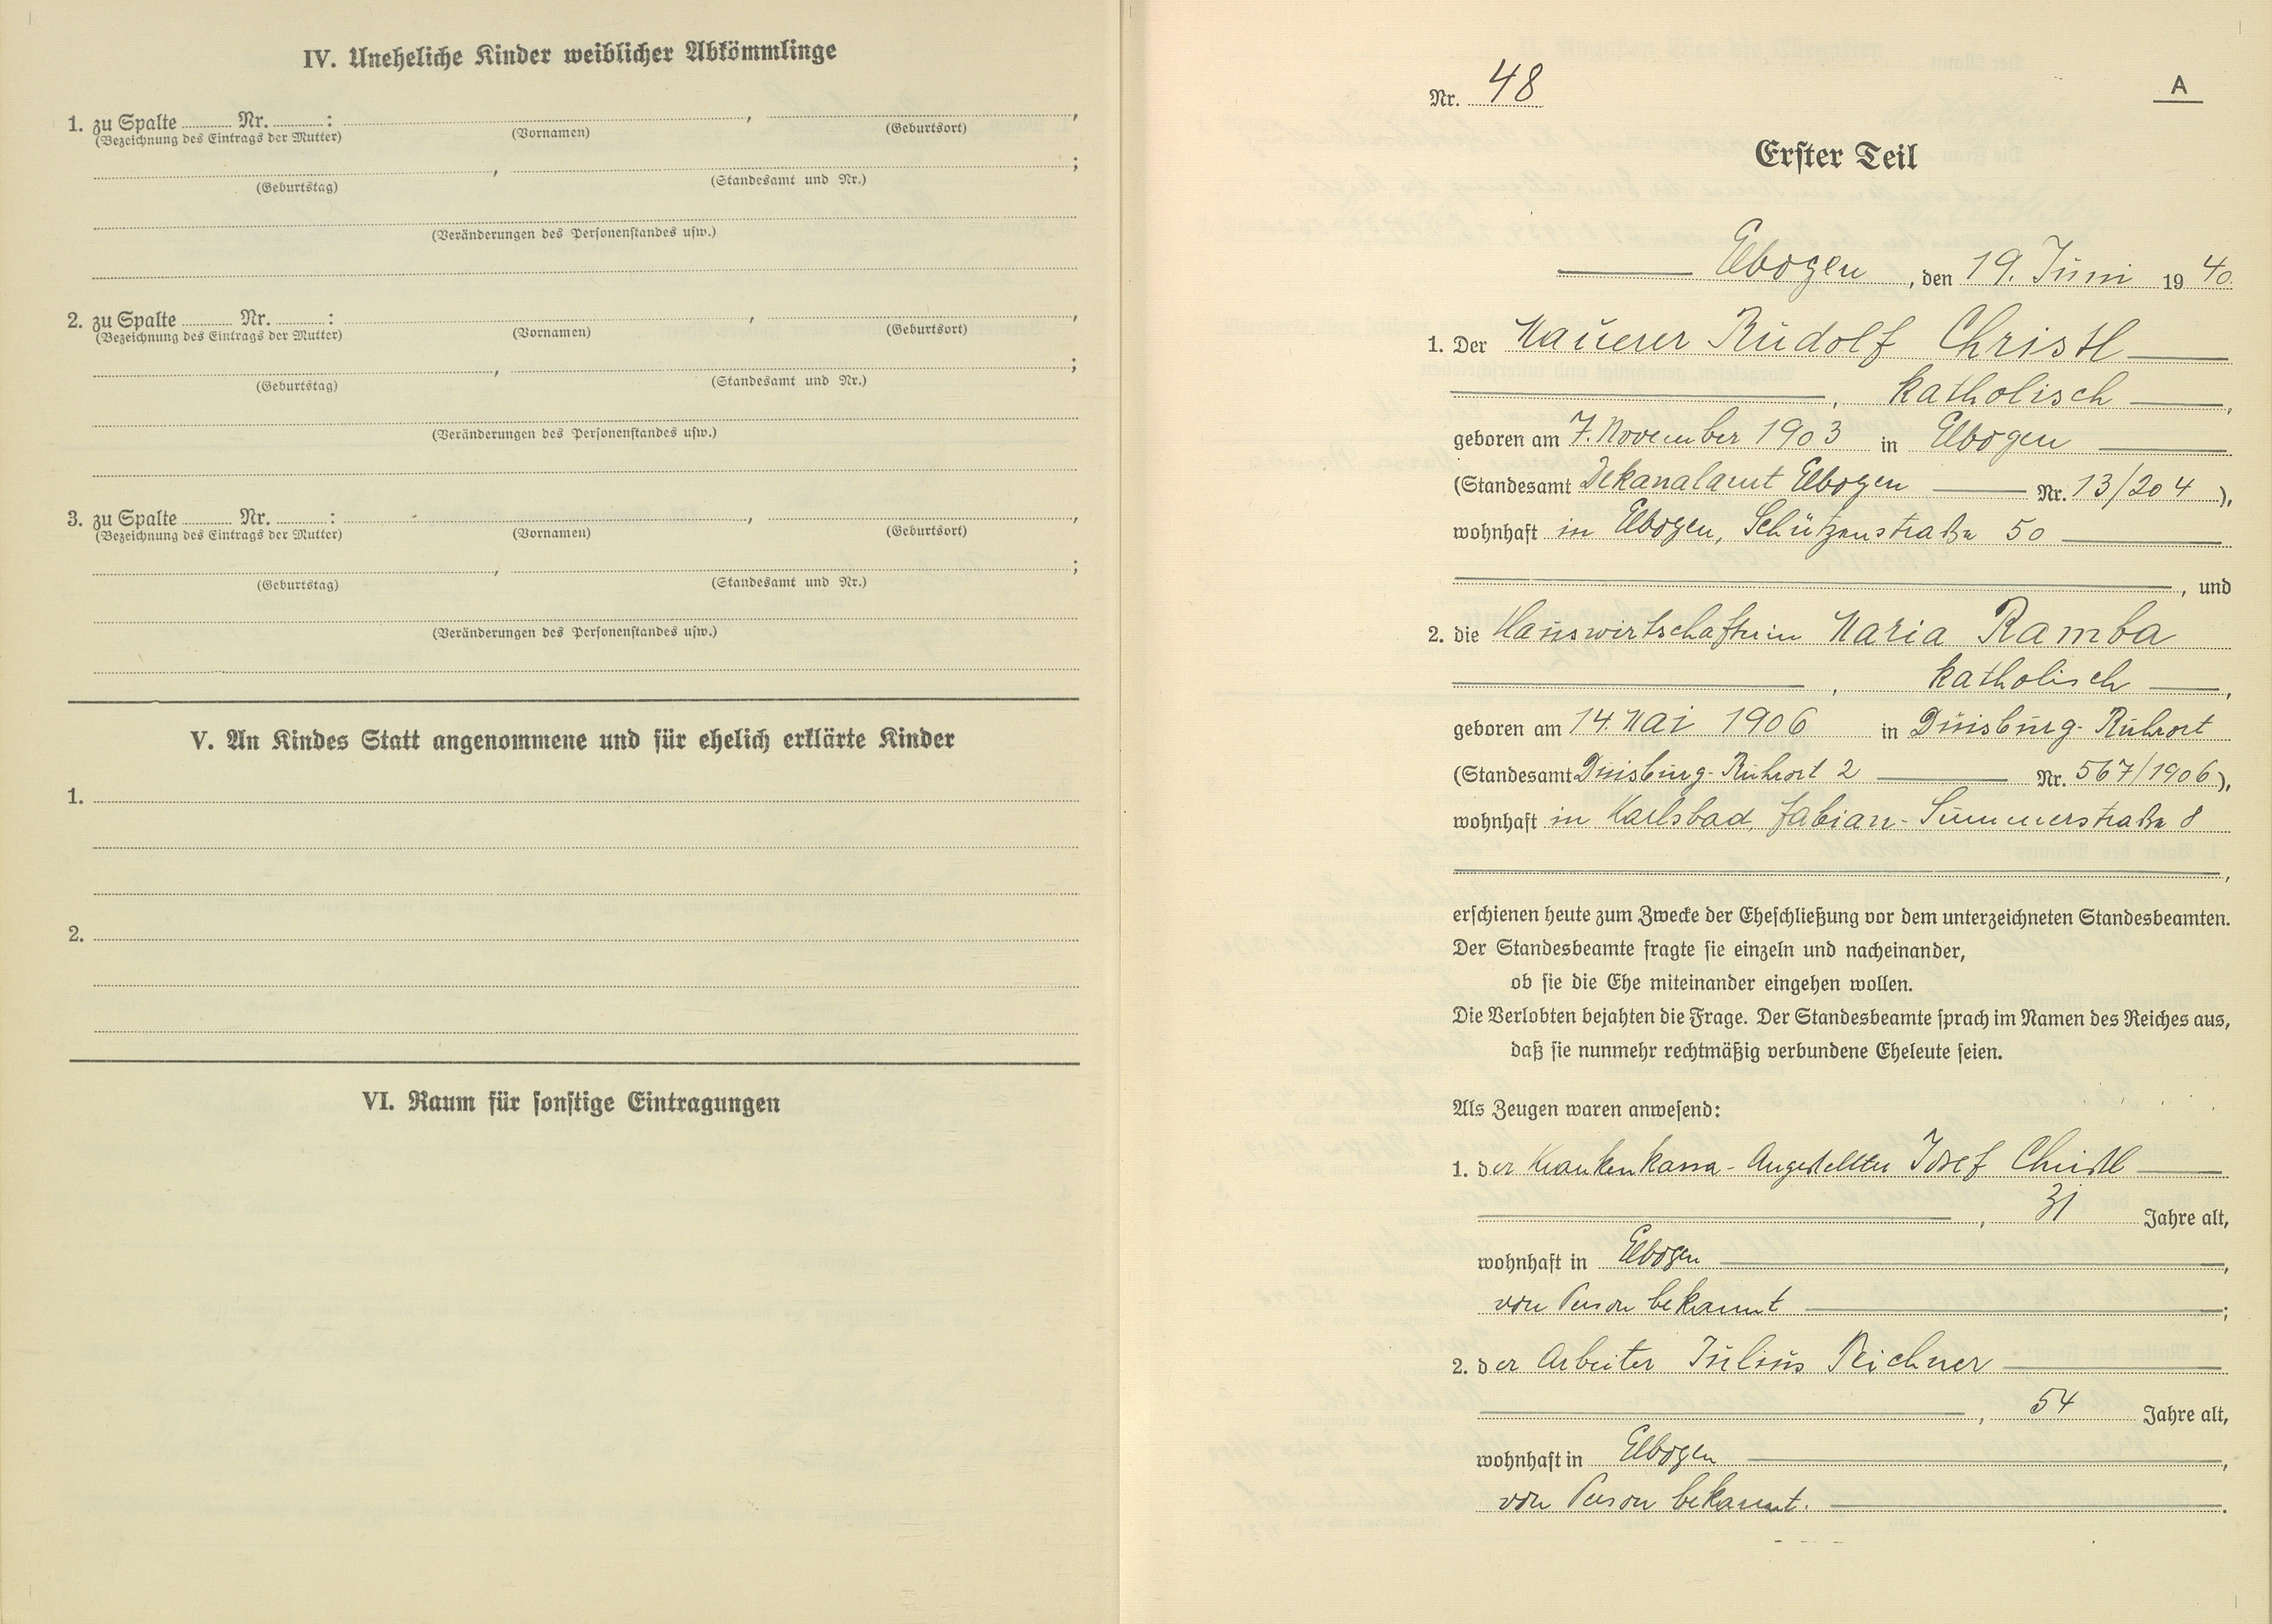 IV. Uneheliche Kinder weiblicher Abkömmlinge
1. zu Spalte ........ Nr. ........ : , ,
(Bezeichnung des Eintrags der Mutter) (Vornamen) (Geburtsort)
, ;
(Geburtstag) (Standesamt und Nr.)
(Veränderungen des Personenstandes usw.)
2. zu Spalte ........ Nr. ........ : , ,
(Bezeichnung des Eintrags der Mutter) (Vornamen) (Geburtsort)
, ;
(Geburtstag) (Standesamt und Nr.)
(Veränderungen des Personenstandes usw.)
3. zu Spalte ........ Nr. ........ : , ,
(Bezeichnung des Eintrags der Mutter) (Vornamen) (Geburtsort)
, ;
(Geburtstag) (Standesamt und Nr.)
(Veränderungen des Personenstandes usw.)
V. An Kindes Statt angenommene und für ehelich erklärte Kinder
1.
2.
VI. Raum für sonstige Eintragungen
Nr. 48
A
Erster Teil
Elbogen, den 19. Juni 1940.
1. Der Maurer Rudolf Christl
, katholisch,
geboren am 7. November 1903 in Elbogen
(Standesamt Dekanalamt Elbogen Nr. 13/204),
wohnhaft in Elbogen, Schützenstraße 50
, und
2. die Hauswirtschafterin Maria Ramba
, katholisch,
geboren am 14. Mai 1906 in Duisburg-Ruhrort
(Standesamt Duisburg-Ruhrort 2 Nr. 567/1906),
wohnhaft in Karlsbad, Fabian-Summerstraße 8
,
erschienen heute zum Zwecke der Eheschließung vor dem unterzeichneten Standesbeamten.
Der Standesbeamte fragte sie einzeln und nacheinander,
ob sie die Ehe miteinander eingehen wollen.
Die Verlobten bejahten die Frage. Der Standesbeamte sprach im Namen des Reiches aus,
daß sie nunmehr rechtmäßig verbundene Eheleute seien.
Als Zeugen waren anwesend:
1. der Krankenkassa-Angestellter Josef Christl
, 31 Jahre alt,
wohnhaft in Elbogen,
von Person bekannt;
2. der Arbeiter Julius Reichner
, 54 Jahre alt,
wohnhaft in Elbogen,
von Person bekannt.